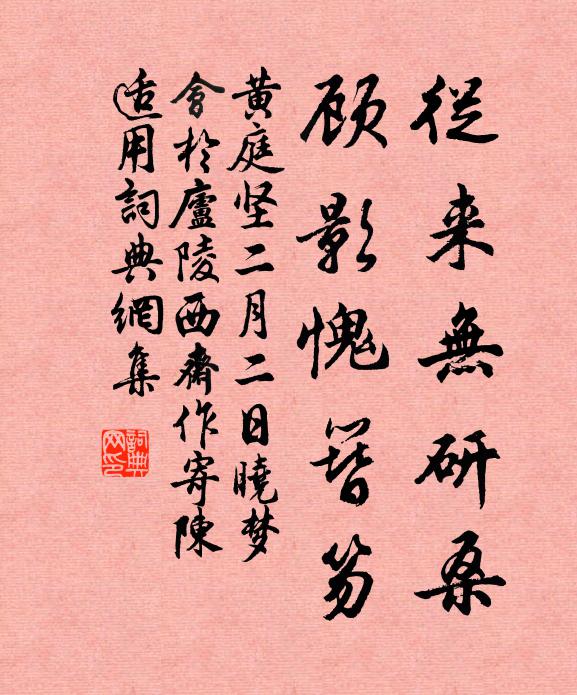 從来無研桑
顾影愧簪笏
黄庭坚二月二日曉梦
會於廬陵西齋作寄陳
适用詞典網集
詞典网印